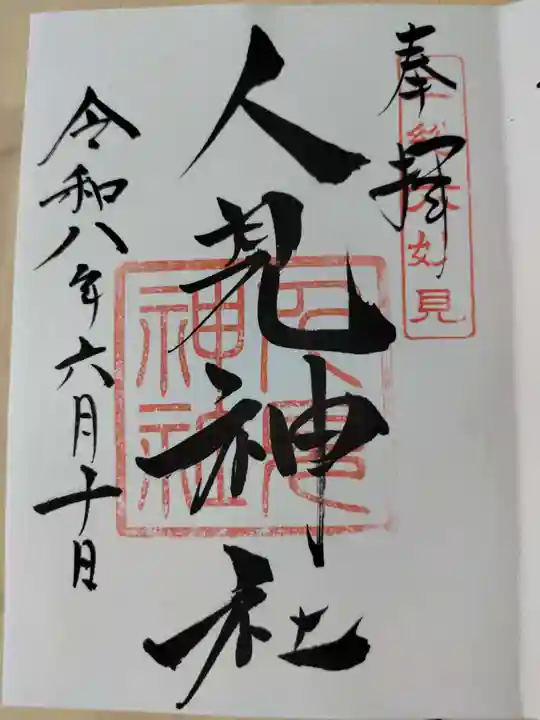 奉拝
総
妙見
人見神社
人見
神社
令和八年六月十日